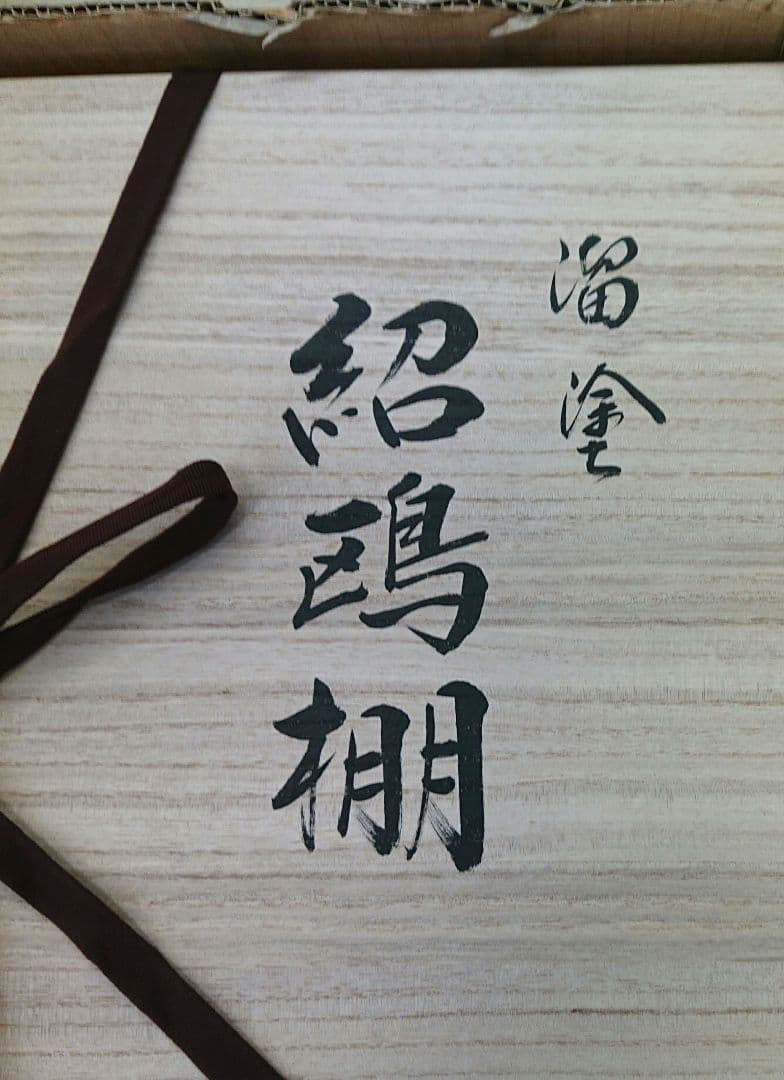 溜塗
紹鴎棚